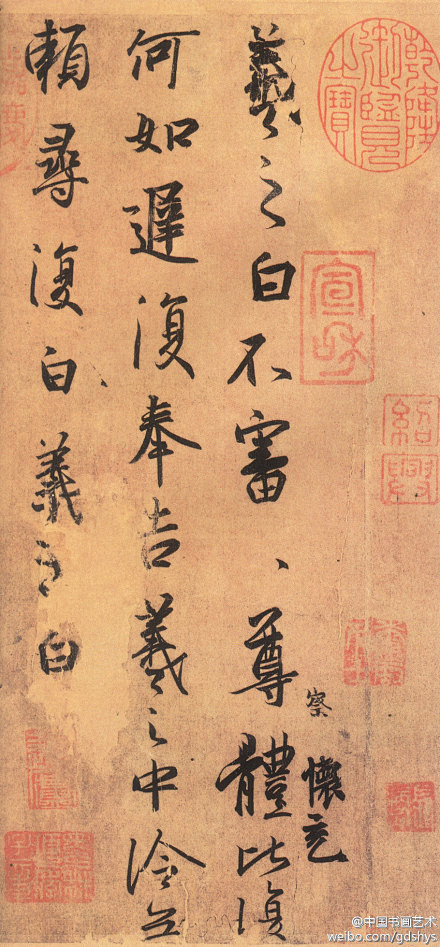 乾隆御覽之寶
宣和
紹興
察
懷充
羲之白不審、尊體比復
何如遲復奉告羲之中冷無
賴尋復白、羲之白
@中国书画艺术
weibo.com/qdshys